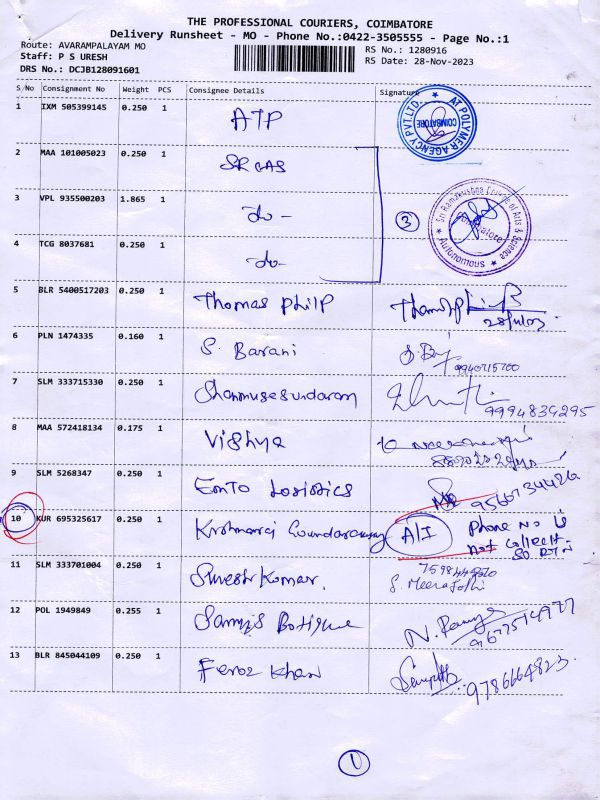 THE PROFESSIONAL COURIERS, COIMBATORE
Delivery Runsheet - MO - Phone No.:0422-3505555 - Page No.:1
Route: AVARAMPALAYAM MO
Staff: P S URESH
DRS No.: DCJB128091601
RS No.: 1280916
RS Date: 28-Nov-2023
S/No Consignment No Weight PCS Consignee Details Signature
1 IXM 505399145 0.250 1 ATP
AT POLYMER AGENCY PVT.LTD. COIMBATORE
2 MAA 101005023 0.250 1 SRCAS
3 VPL 935500203 1.865 1 -do- 3
Sri Ramakrishna College of Arts & Science Coimbatore Autonomous
4 TCG 8037681 0.250 1 -do-
5 BLR 5400517203 0.250 1 Thomas Philp
6 PLN 1474335 0.160 1 S. Barani
9940715700
7 SLM 333715330 0.250 1 Shanmugasundaram
9994839295
8 MAA 572418134 0.175 1 Vidhya
9 SLM 5268347 0.250 1 Emto Logistics
9566734426
10 KUR 695325617 0.250 1 Krishnaraj Goundaramy A/I Phone No is
not collect
so RTN
11 SLM 333701004 0.250 1 Suresh Kumar.
12 POL 1949849 0.255 1 Sammy's Botique N. Ramya
13 BLR 845044109 0.250 1 Feroz Khan
9786664823
1